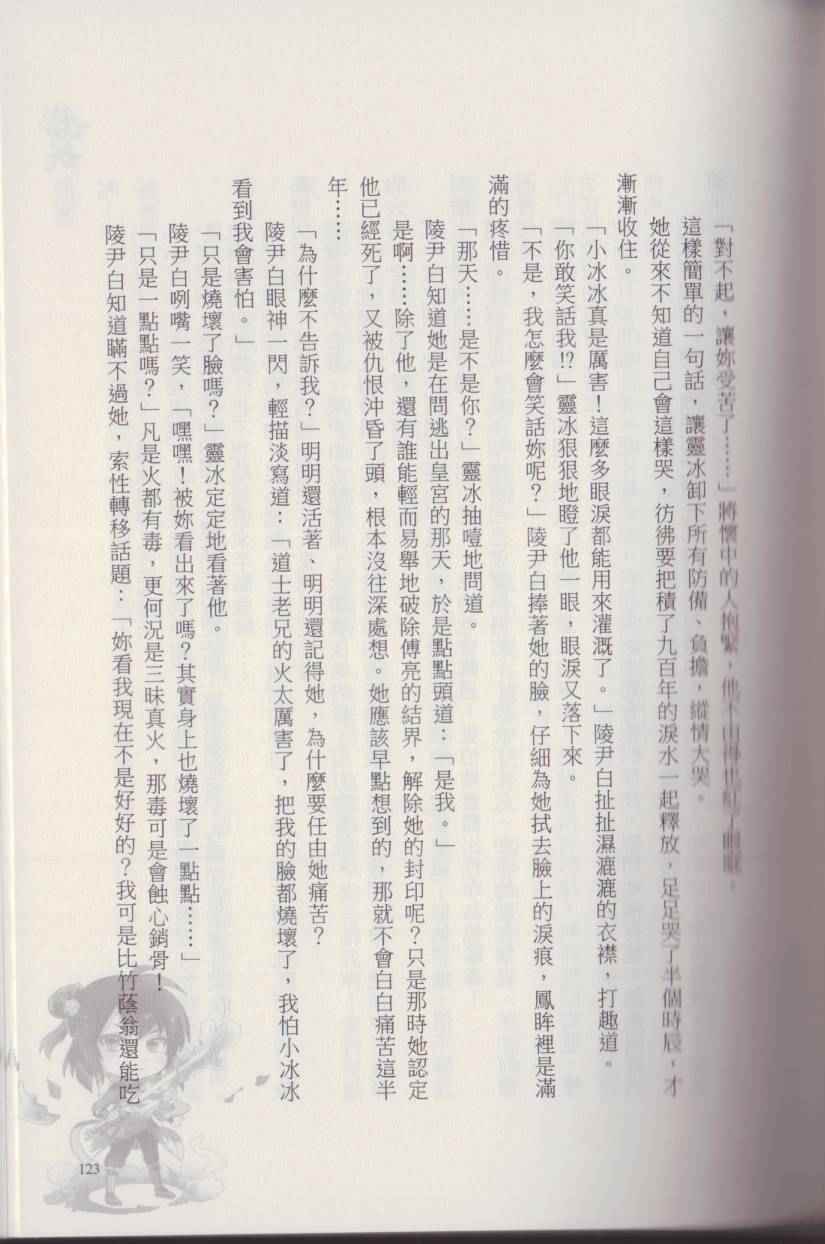 「對不起，讓妳受苦了……」將懷中的人抱緊，他不由得也紅了眼眶。
這樣簡單的一句話，讓靈冰卸下所有防備、負擔，縱情大哭。
她從來不知道自己會這樣哭，彷彿要把積了九百年的淚水一起釋放，足足哭了半個時辰，才
漸漸收住。
「小冰冰真是厲害！這麼多眼淚都能用來灌溉了。」陵尹白扯扯濕漉漉的衣襟，打趣道。
「你敢笑話我!?」靈冰狠狠地瞪了他一眼，眼淚又落下來。
「不是，我怎麼會笑話妳呢？」陵尹白捧著她的臉，仔細為她拭去臉上的淚痕，鳳眸裡是滿
滿的疼惜。
「那天……是不是你？」靈冰抽噎地問道。
陵尹白知道她是在問逃出皇宮的那天，於是點點頭道：「是我。」
是啊……除了他，還有誰能輕而易舉地破除傅亮的結界，解除她的封印呢？只是那時她認定
他已經死了，又被仇恨沖昏了頭，根本沒往深處想。她應該早點想到的，那就不會白白痛苦這半
年……
「為什麼不告訴我？」明明還活著、明明還記得她，為什麼要任由她痛苦？
陵尹白眼神一閃，輕描淡寫道：「道士老兄的火太厲害了，把我的臉都燒壞了，我怕小冰冰
看到我會害怕。」
「只是燒壞了臉嗎？」靈冰定定地看著他。
陵尹白咧嘴一笑，「嘿嘿！被妳看出來了嗎？其實身上也燒壞了一點點……」
「只是一點點嗎？」凡是火都有毒，更何況是三昧真火，那毒可是會蝕心銷骨！
陵尹白知道瞞不過她，索性轉移話題：「妳看我現在不是好好的？我可是比竹蔭翁還能吃
123